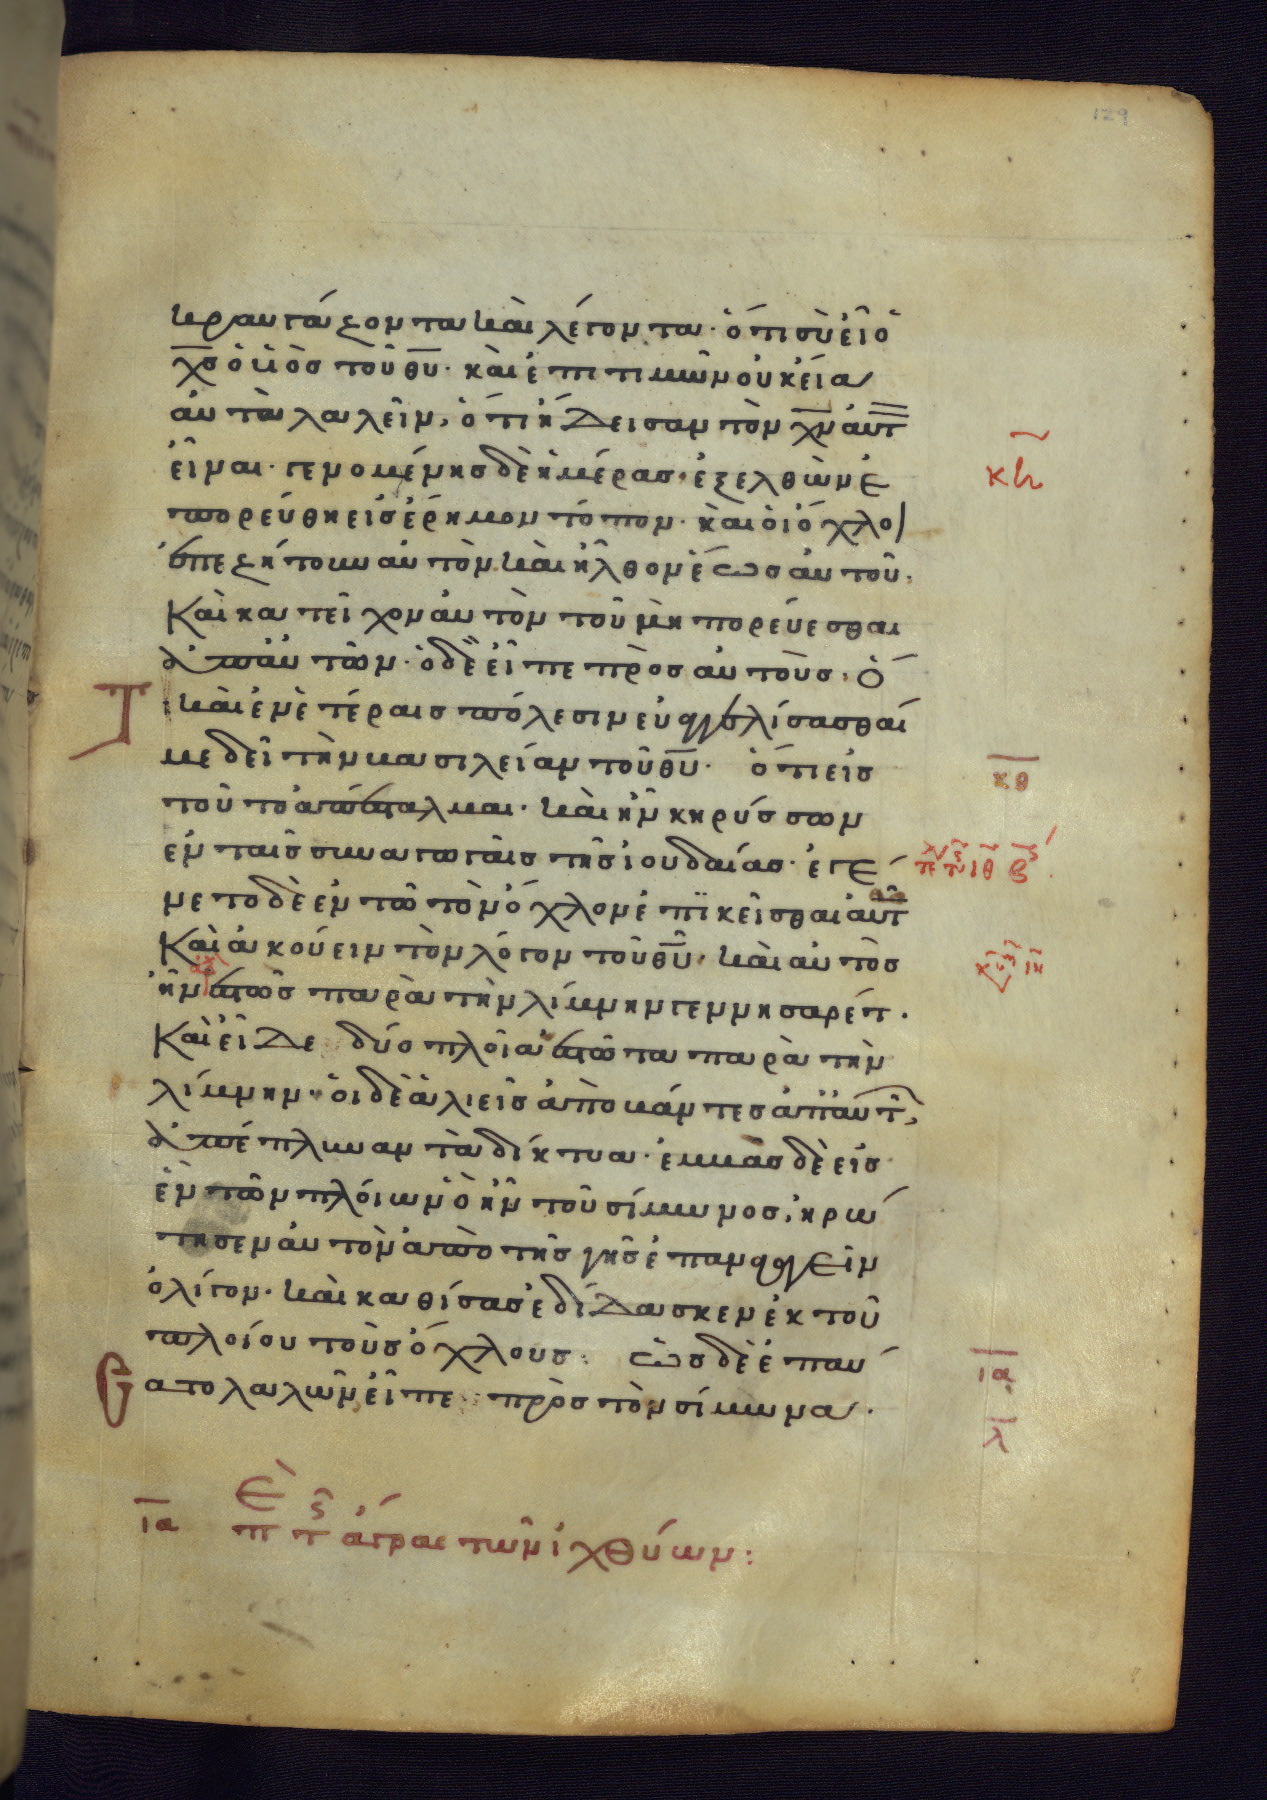 129
κραυγάζοντα καὶ λέγοντα· ὅτι σὺ εἶ ὁ
χ̅σ̅ ὁ υἱὸσ τοῦ θ̅υ̅· καὶ ἐπιτιμῶν οὐκ εἴα
αὐτὰ λαλεῖν, ὅτι ἤδεισαν τὸν χ̅ν̅ αὐτ
εἶναι· γενομένησ δὲ ἡμέρασ· ἐξελθὼν ἐ
πορεύθη εἰσ ἔρημον τόπον· καὶ οἱ ὄχλοι
ἐπεζήτουν αὐτὸν καὶ ἦλθον ἕωσ αὐτοῦ,
Καὶ κατεῖχον αὐτὸν τοῦ μὴ πορεύεσθαι
ἀπ' αὐτῶν· ὁ δὲ εἶπε πρὸσ αὐτούσ· ὅ
τι καὶ ἐν ἑτέραισ πόλεσιν εὐαγγελίσασθαί
με δεῖ τὴν βασιλείαν τοῦ θ̅υ̅· ὅτι εἰσ
τοῦτο ἀπέσταλμαι· καὶ ἦν κηρύσσων
ἐν ταῖσ συναγωγαῖσ τῆσ ἰουδαίασ· ἐγέ
νετο δὲ ἐν τῶ τὸν ὄχλον ἐπικεῖσθαι αὐτῶ
Καὶ ἀκούειν τὸν λόγον τοῦ θ̅υ̅· καὶ αὐτὸσ
ἦν ἑστὼσ παρὰ τὴν λίμνην γεννησαρέτ·
Καὶ εἶδε δύο πλοῖα ἑστῶτα παρὰ τὴν
λίμνην· οἱ δὲ ἁλιεῖσ ἀποβάντεσ ἀπ' αὐτ,
ἀπέπλυναν τὰ δίκτυα· ἐμβὰσ δὲ εἰσ
ἓν τῶν πλοίων ὃ ἦν τοῦ σίμωνοσ, ἠρώ
τησεν αὐτὸν ἀπὸ τῆσ γῆσ ἐπαναγαγεῖν
ὀλίγον· καὶ καθίσασ ἐδίδασκεν ἐκ τοῦ
πλοίου τοὺσ ὄχλουσ: ὡσ δὲ ἐπαύ
σατο λαλῶν εἶπε πρὸσ τὸν σίμωνα·
κη
κθ
ια
λ
ια π τ ἄγρασ τῶν ἰχθύων: